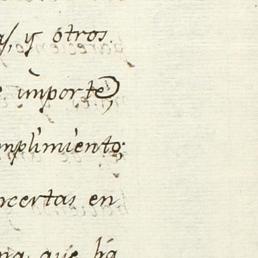 y otros
importe
mplimiento;
ncertas en
que ha